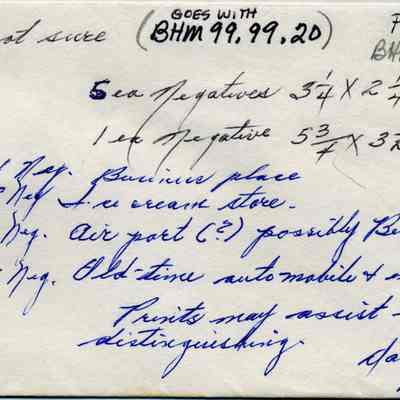 GOES WITH
not sure (BHM 99.99.20)
BHM
5 ea Negatives 3 1/4 X 2 1/4
1 ea Negative 5 3/7 X 3
Neg. Business place
Neg Ice cream store.
Neg. Air port (?) possibly
Neg. Old-time automobile &
Prints may assist
distinguishing.